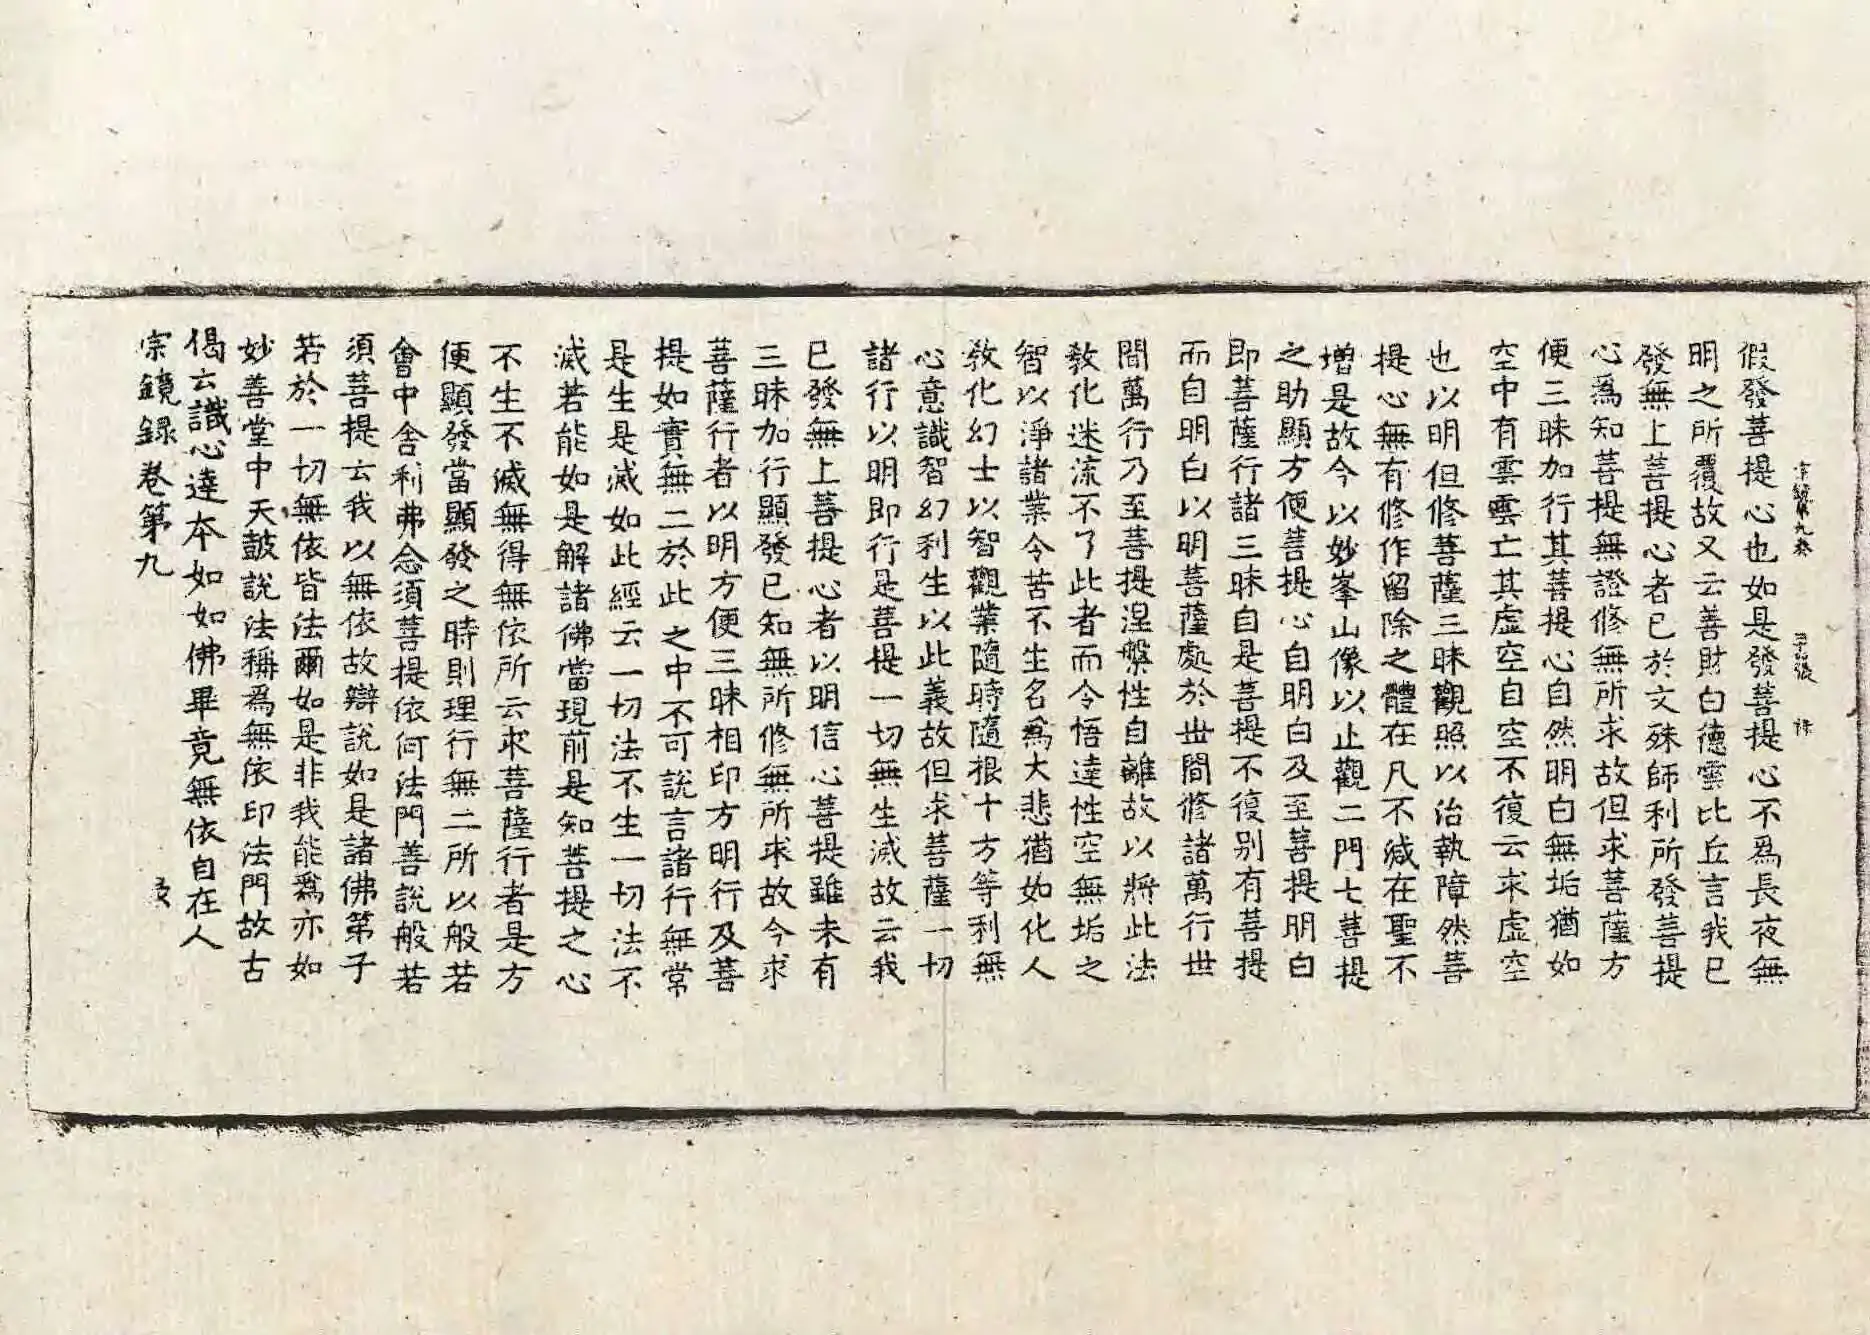 宗鏡第九卷
假發菩提心也如是發菩提心不爲長夜無
明之所覆故又云善財白德雲比丘言我已
發無上菩提心者已於文殊師利所發菩提
心爲知菩提無證修無所求故但求菩薩方
便三昧加行其菩提心自然明白無垢猶如
空中有雲雲亡其虛空自空不復云求虛空
也以明但修菩薩三昧觀照以治執障然菩
提心無有修作留除之體在凡不減在聖不
增是故今以妙峯山像以止觀二門七菩提
之助顯方便菩提心自明白及至菩提明白
即菩薩行諸三昧自是菩提不復别有菩提
而自明白以明菩薩處於世間修諸萬行世
間萬行乃至菩提涅槃性自離故以將此法
教化迷流不了此者而令悟達性空無垢之
智以淨諸業令苦不生名爲大悲猶如化人
教化幻士以智觀業隨時隨根十方等利無
心意識智幻利生以此義故但求菩薩一切
諸行以明即行是菩提一切無生滅故云我
已發無上菩提心者以明信心菩提雖未有
三昧加行顯發已知無所修無所求故今求
菩薩行者以明方便三昧相印方明行及菩
提如實無二於此之中不可説言諸行無常
是生是滅如此經云一切法不生一切法不
滅若能如是解諸佛當現前是知菩提之心
不生不滅無得無依所云求菩薩行者是方
便顯發當顯發之時則理行無二所以般若
會中舍利弗念須菩提依何法門善説般若
須菩提云我以無依故辯説如是諸佛第子
若於一切無依皆法爾如是非我能爲亦如
妙善堂中天鼓説法稱爲無依印法門故古
偈云識心達本如如佛畢竟無依自在人
宗鏡錄卷第九